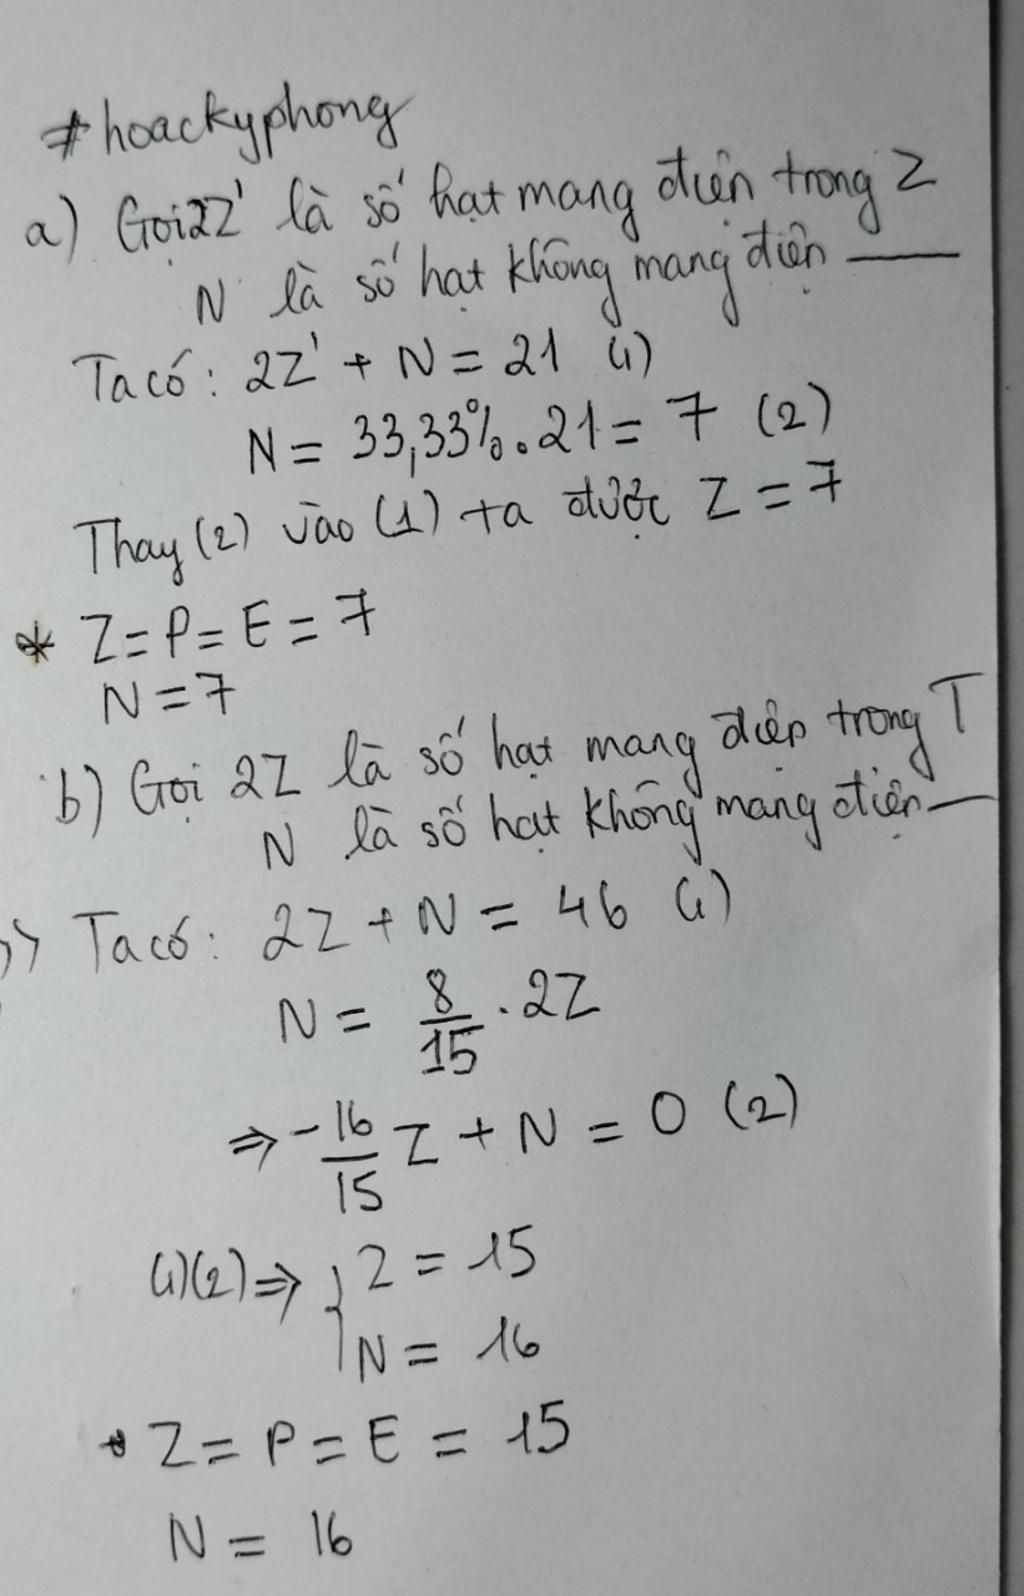 #hoackyphong
a) Gọi 2Z' là số hạt mang điện trong Z
N là số hạt không mang điện ——
Ta có: 2Z' + N = 21 (1)
N = 33,33%.21 = 7 (2)
Thay (2) vào (1) ta được Z = 7
* Z = P = E = 7
N = 7
b) Gọi 2Z là số hạt mang điện trong T
N là số hạt không mang điện —
Ta có: 2Z + N = 46 (1)
N = 8/15 . 2Z
⇒ -16/15 Z + N = 0 (2)
(1)(2) ⇒ { Z = 15
N = 16
* Z = P = E = 15
N = 16